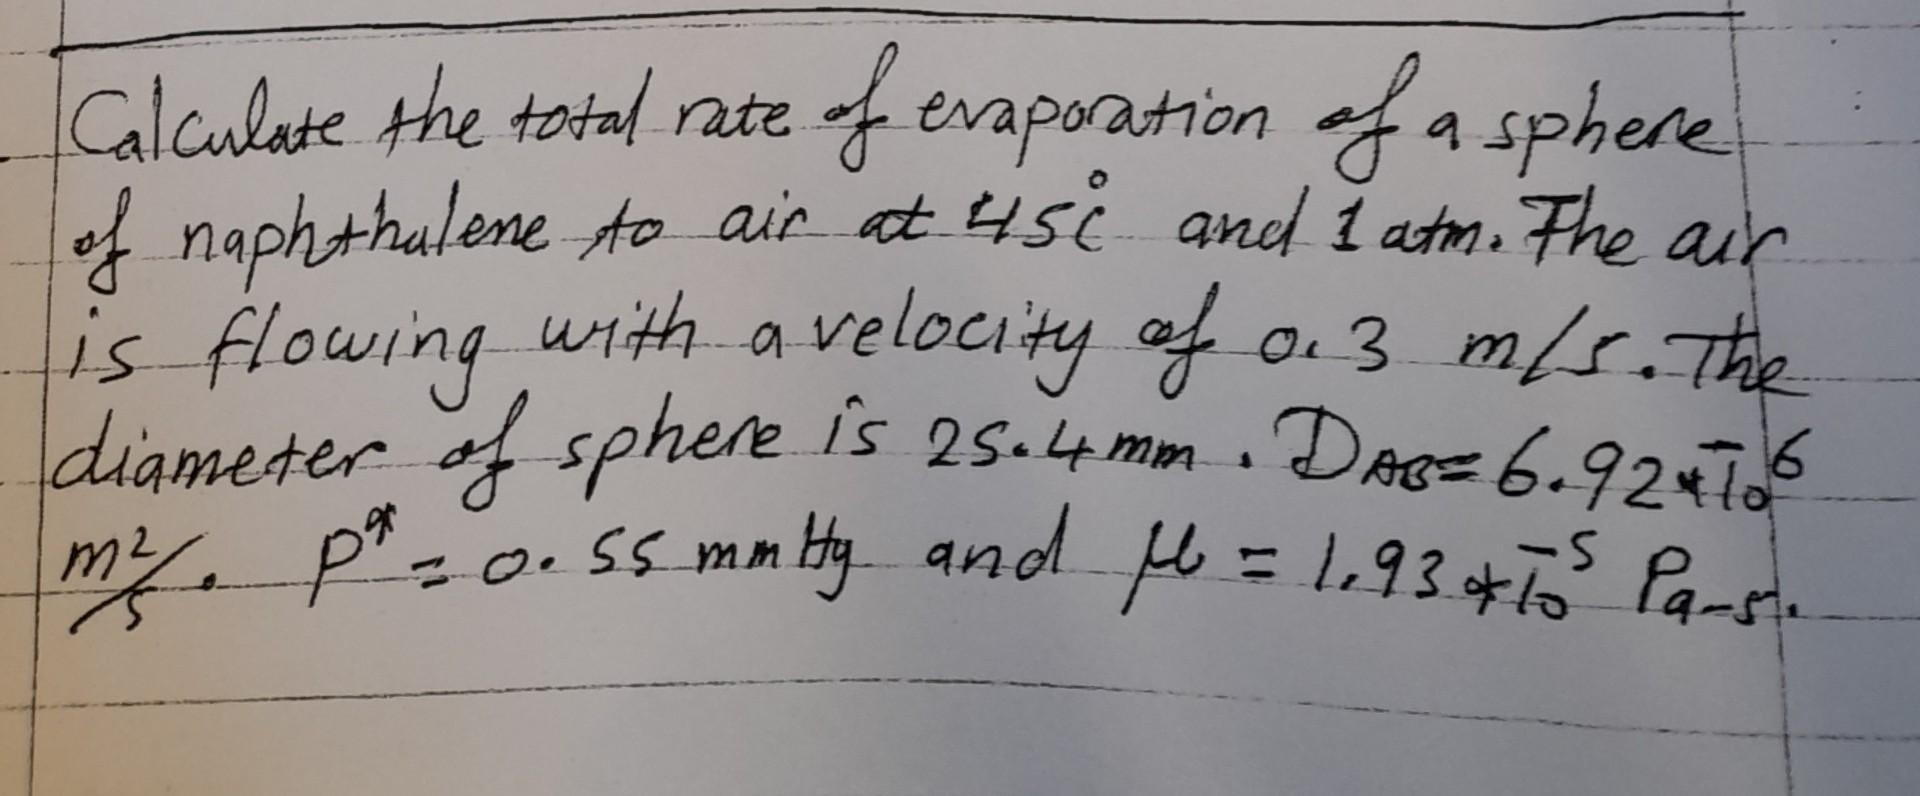 Calculate the total rate of evaporation of a sphere
of naphthalene to air at 45°C and 1 atm. The air
is flowing with a velocity of 0.3 m/s. The
diameter of sphere is 25.4 mm. DAB = 6.92 * 10⁻⁶
m²/s. P* = 0.55 mmHg and μ = 1.93 * 10⁻⁵ Pa-s.